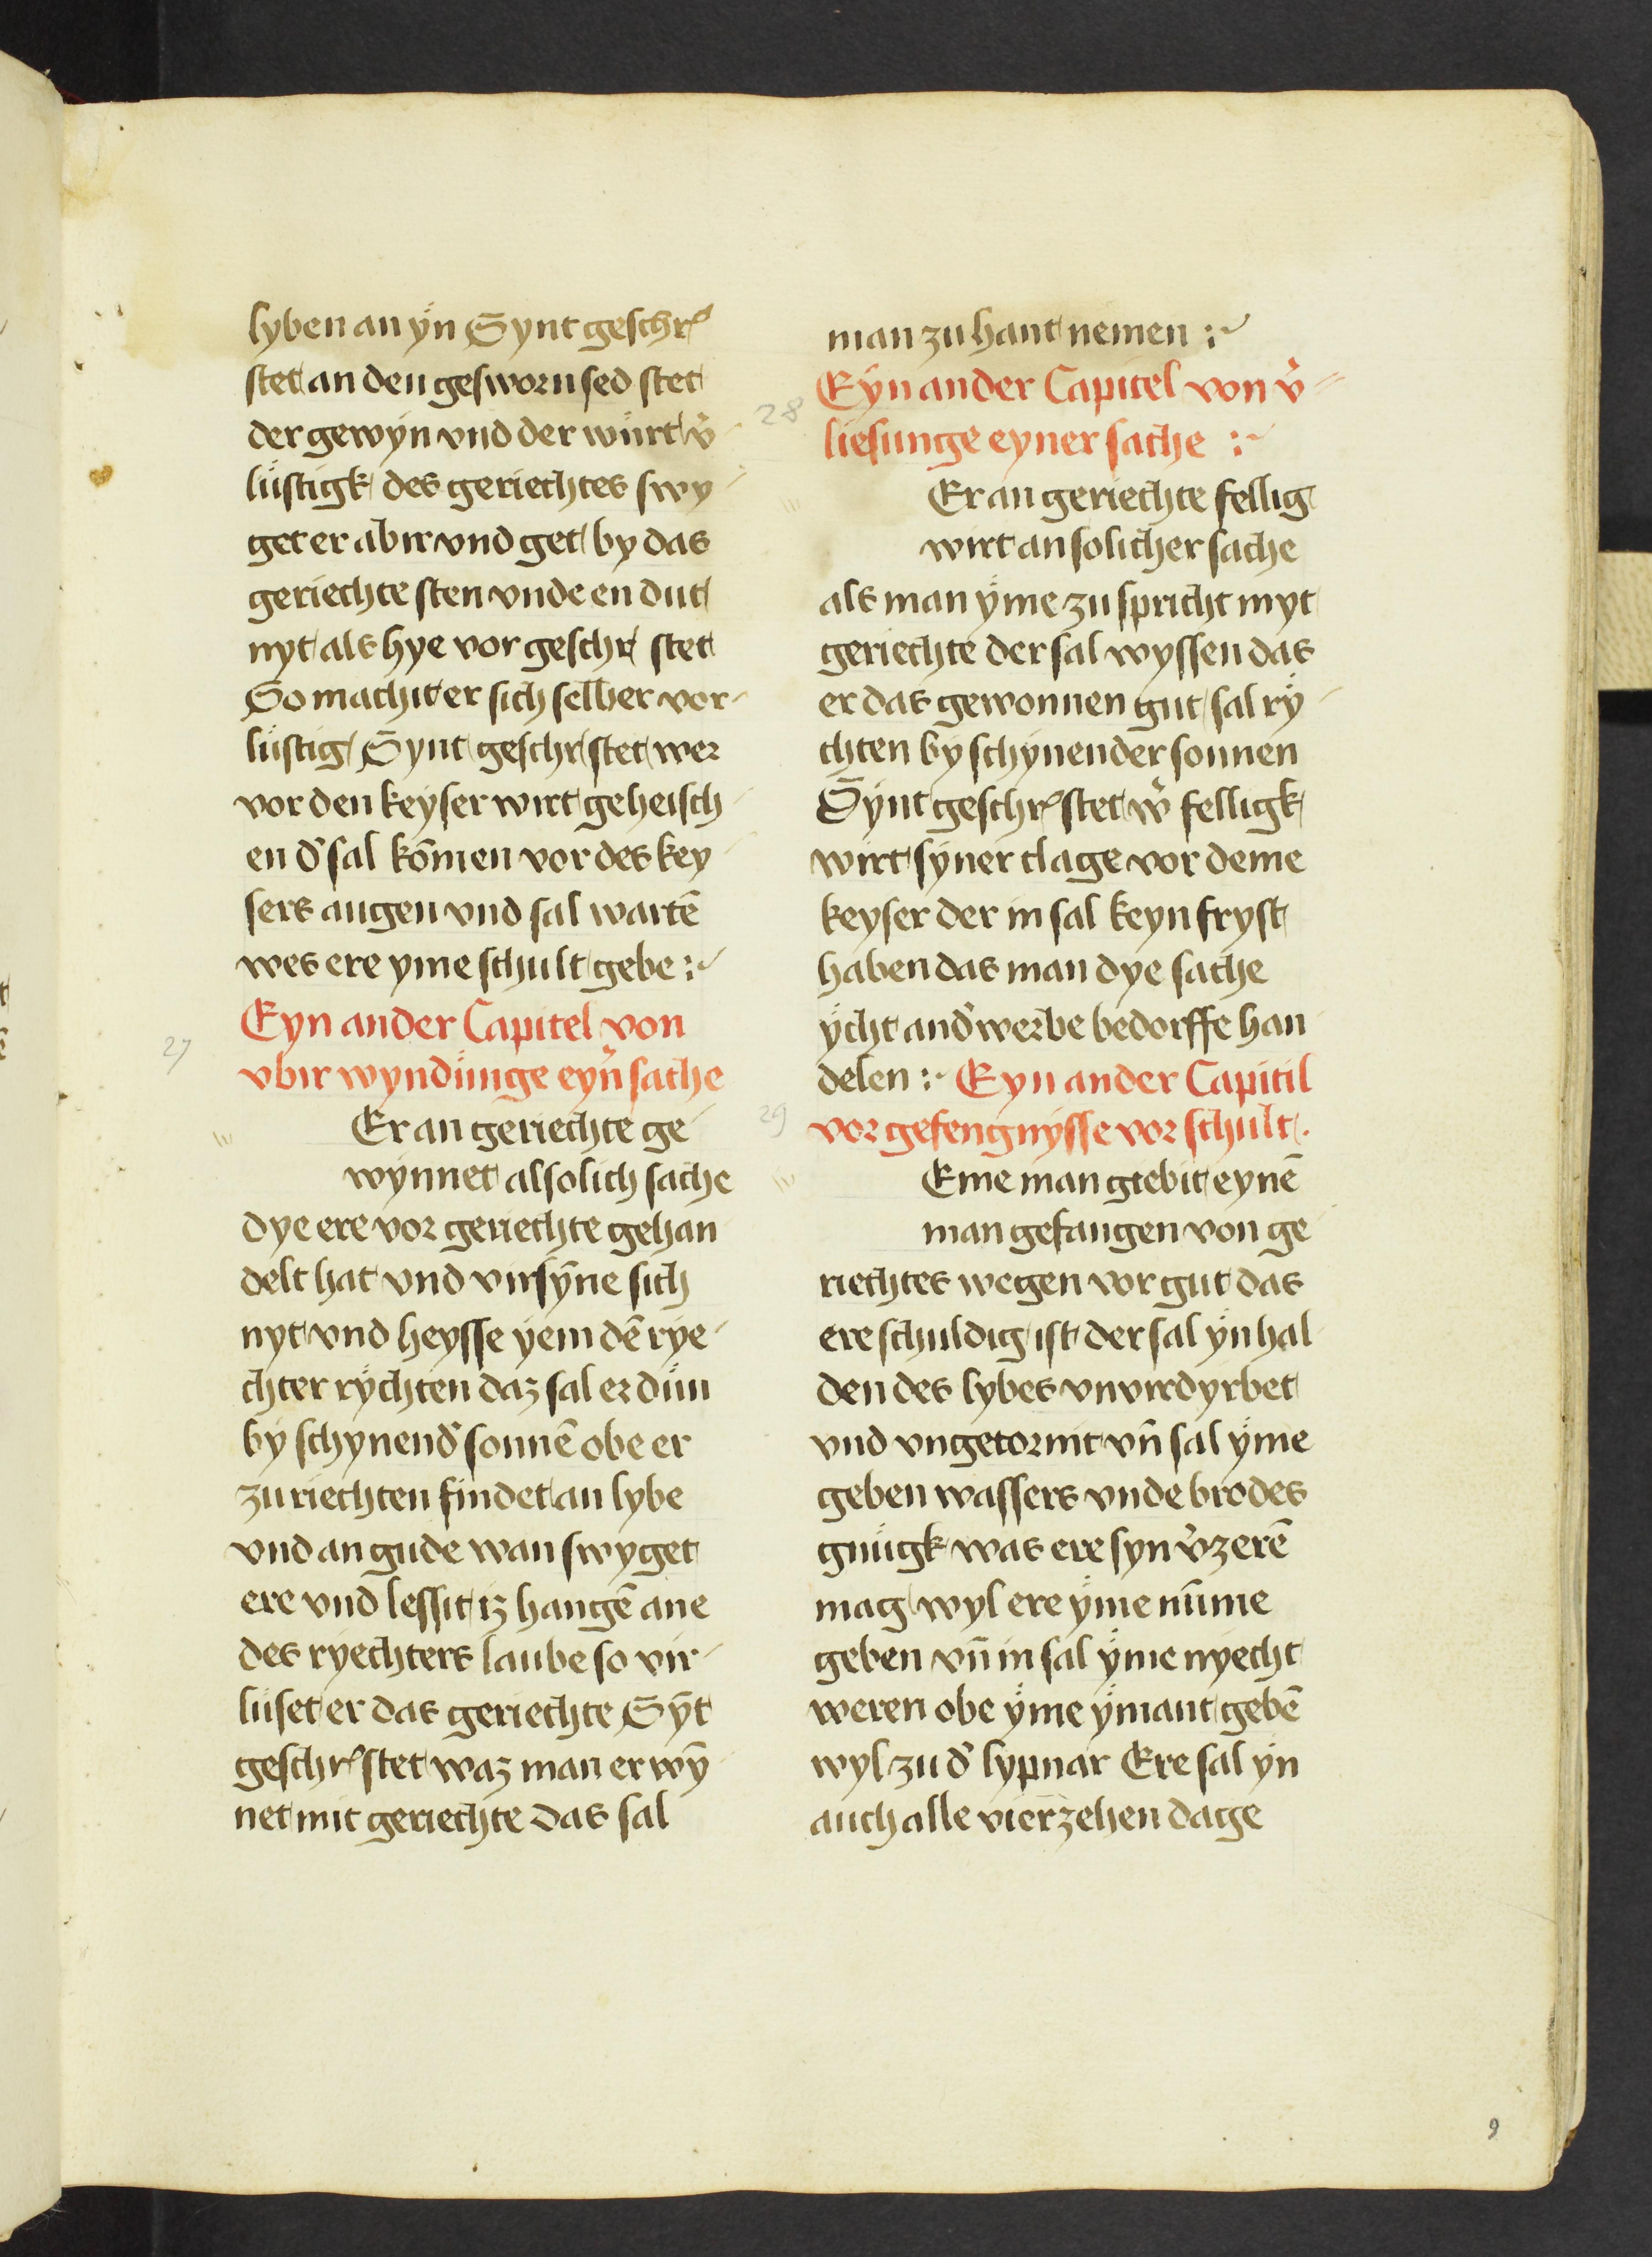 lyben an yn Synt geschr
stet an den gesworn sed stet
der gewyn vnd der wůrt v̉
lůstigk des geriechtes swy
get er abir vnd get by das
geriechte sten vnde en dut
nyt als hye vor geschr stet
So machit er sich selber vor-
lůstig Synt geschr stet wer
vor den keyser wirt geheisch
en d̉ sal kōmen vor des key
sers augen vnd sal wartē
wes ere yme schult gebe :~
Eyn ander Capitel von
27
vbir wyndůnge eyn̉ sache
Er an geriechte ge
wynnet alsolich sache
dye ere vor geriechte gehan
delt hat vnd virsȳne sich
nyt vnd heysse yem dē rye
chter rychten daz sal er důn
by schynend̉ sonnē obe er
zu riechten findet an lybe
vnd an gude wan swyget
ere vnd lessit iz hangē ane
des ryechters laube so vir-
lůset er das geriechte Sȳt
geschr stet waz man er wȳ
net mit geriechte das sal
man zu hant nemen :~
28
Eyn ander Capitel von v̉
liesunge eyner sache :~
Er an geriechte fellig
wirt an solicher sache
als man yme zu spricht myt
geriechte der sal wyssen das
er das gewonnen gut sal ry
chten by schynender sonnen
Synt geschr stet w̉ felligk
wirt syner clage vor deme
keyser der in sal keyn fryst
haben das man dye sache
ycht and̉werbe bedorffe han
delen :~ Eyn ander Capitil
29
vor gefengnysse vor schult.
Eme man giebit eynē
man gefangen von ge
riechtes wegen vor gut das
ere schuldig ist der sal yn hal
den des lybes vnvirdyrbet
vnd vngetormt vn̄ sal yme
geben wassers vnde brodes
gnůgk was ere syn v̉zerē
mag wyl ere yme nūme
geben vn̄ in sal yme nyecht
weren obe yme ymant gebē
wyl zu d̉ lypnar Ere sal yn
auch alle vierzehen dage
9